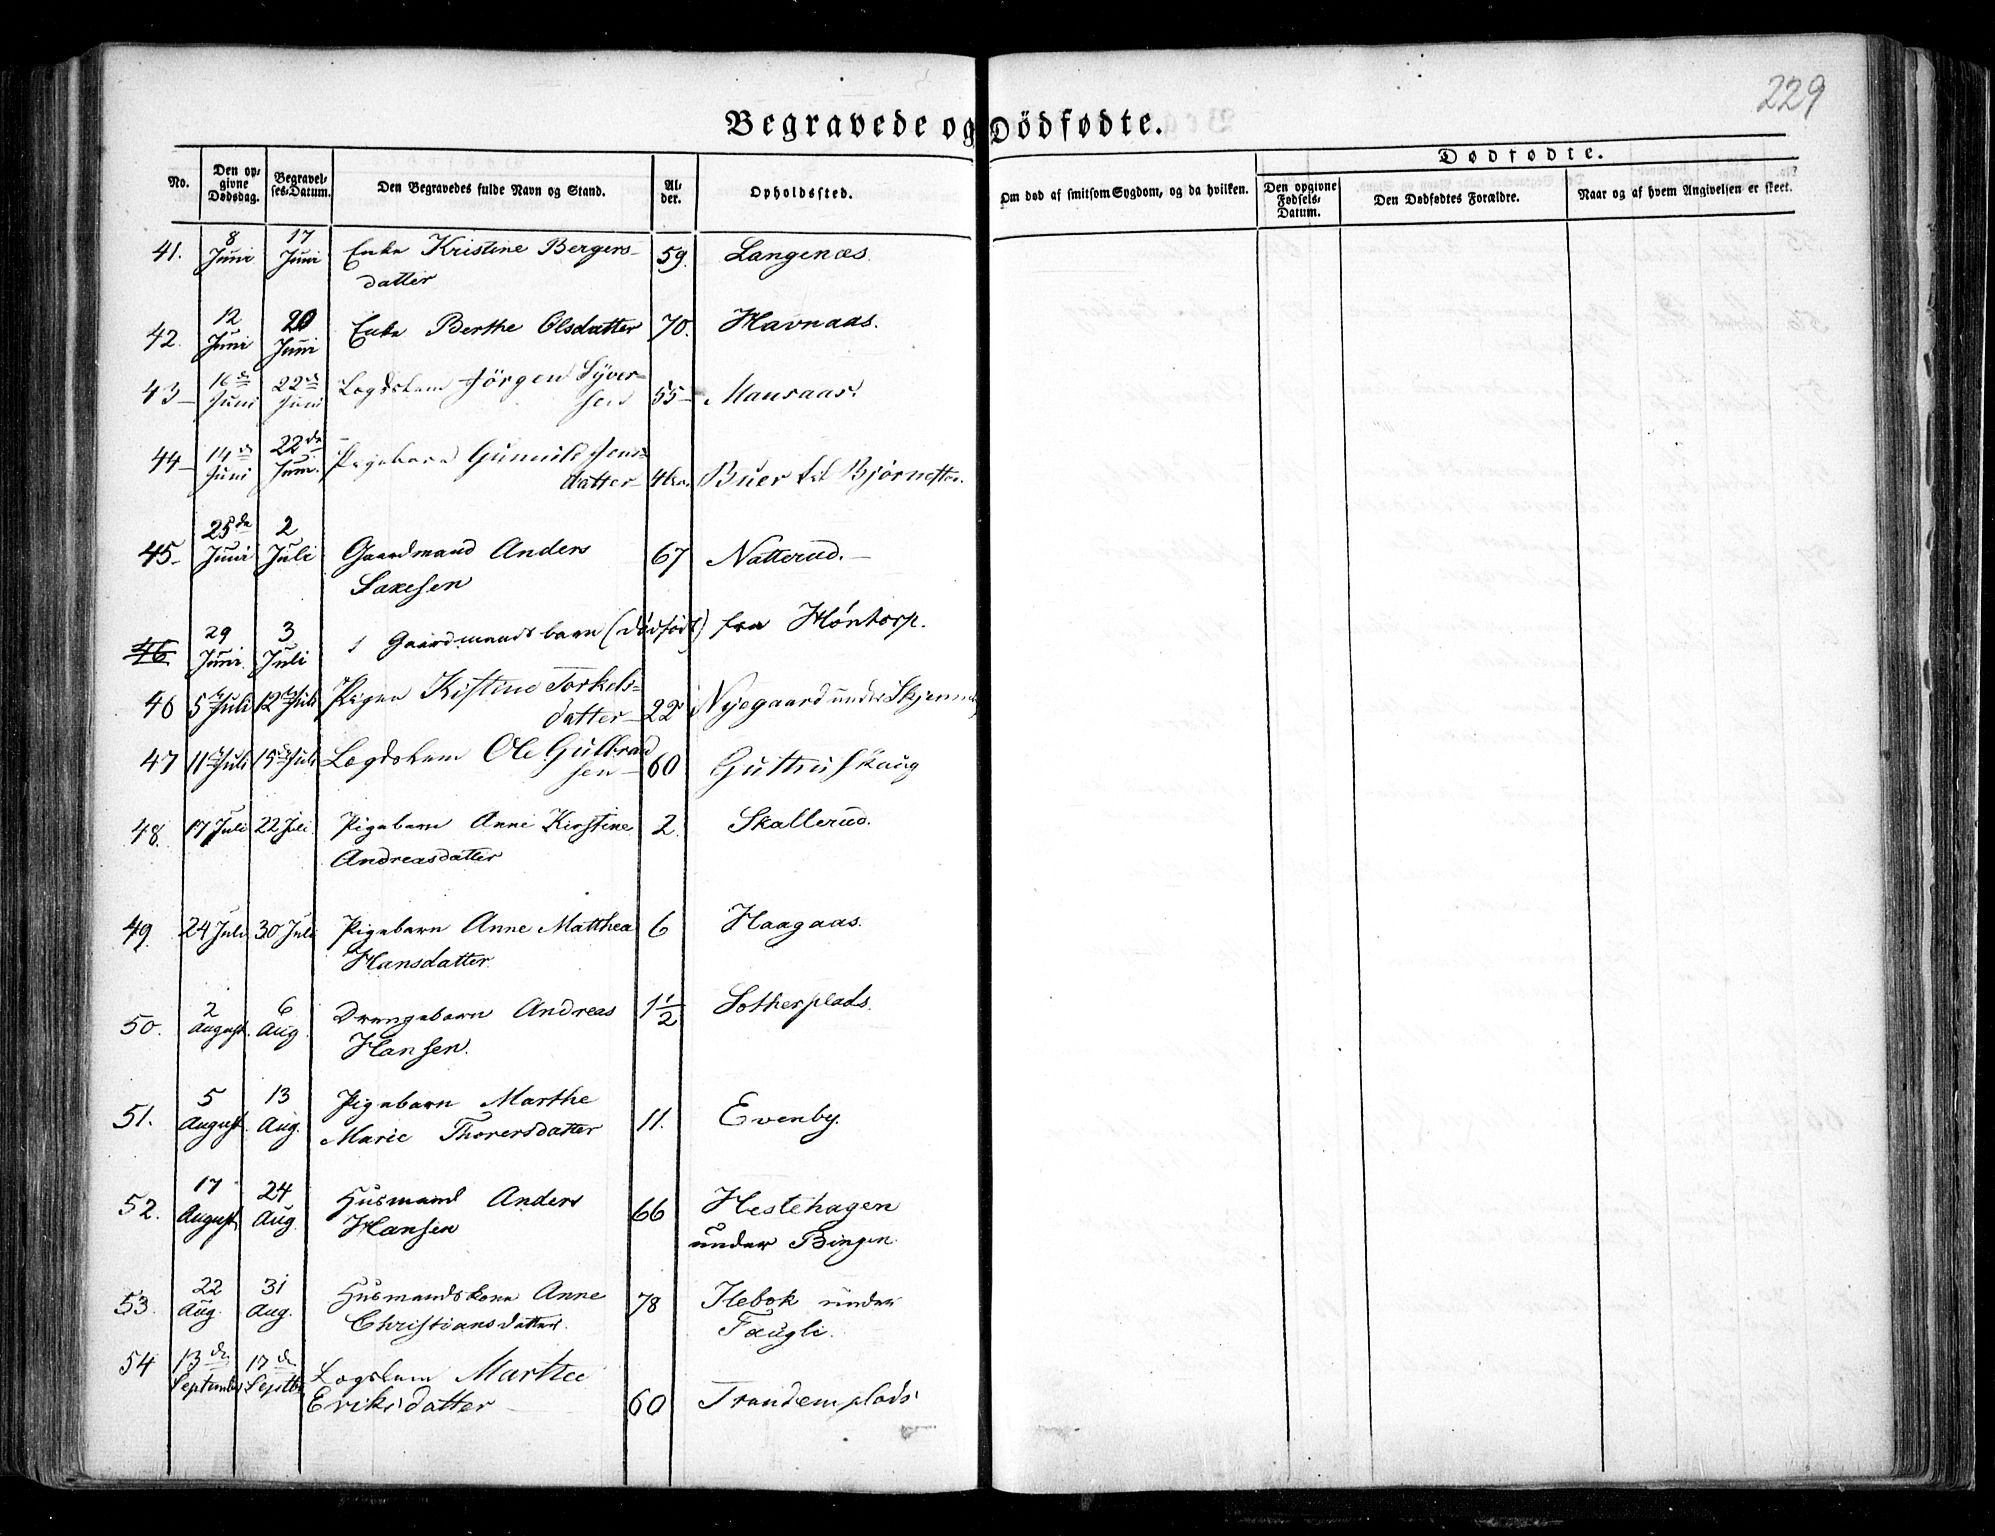 229
Begravede og Dödfødte.
Dødfødte.
No.
Den opgivne Dødsdag.
Begravelses-Datum.
Den Begravedes fulde Navn og Stand.
Alder.
Opholdssted.
Om død af smitsom Sygdom, og da hvilken.
Den opgivne Fødsels-Datum.
Den Dødfødtes Forældre.
Naar og af hvem Angivelsen er skeet.
41. 8 Juni 17 Juni Enke Kristine Bergers- 59. Langenæs.
datter
42. 12 Juni 20 Juni Enke Berthe Olsdatter 70. Havnaas.
43 16de Juni 22de Juni Lægdslem Jörgen Syver- 55 Mausaas.
sen
44 14de Juni 22de Juni Pigebarn Gunnild Jens-
datter Buer
45 25de Juni 2 Juli Gaardmand Anders 67 Natterud.
Saxesen
46 29 Juni 3 Juli 1 Gaardmands barn (dødfødt) fra Høntorp.
46 5te Juli 12te Juli Pigen Kistine Torkels-
datter 22 Nyegaard under
47 11te Juli 15de Juli Lægdslem Ole Gulbrand
sen 60
48. 17 Juli 22 Juli Pigebarn Anne Kirstine 2. Skallerud.
Andreasdatter
49. 24 Juli 30 Juli Pigebarn Anne Matthea 6 Haagaas.
Hansdatter.
50. 2 August. 6 Aug. Drengebarn Andreas 1 1/2 Sotherplads.
Hansen.
51. 5 August. 13 Aug. Pigebarn Marthe 11. Evenby.
Marie Thorersdatter
52. 17 August. 24 Aug. Husmand Anders 66 Hestehagen
Hansen under Bingen.
53. 22 Aug. 31 Aug. Husmandskone Anne 78 Ilebek under
Christiansdatter. Faugli.
54 13de September 17de Septbr Lægslem Marthe
Eriksdatter 60 Trandemplads